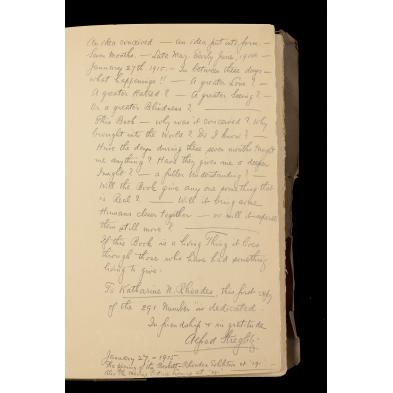 An idea conceived — an idea put into form —
Seven Months. — Late May. Early June, 1914 —
January 27th 1915. — In between these days —
what happenings!! — A greater Love? —
A greater Hatred? — A greater Seeing? —
Or a greater Blindness? —
This Book — why was it conceived? Why
brought into the World? Do I know? —
Have the days during these seven months taught
me anything? Have they given me a deeper
Insight? — a fuller Understanding? —
Will the Book give any one something that
is Real? — Will it bring some
Humans closer together — or will it separate
them still more? —
If this Book is a living Thing it lives
through those who have had something
living to give.
To Katharine N. Rhoades, this first copy
of the 291 Number is dedicated
In friendship & in gratitude
Alfred Stieglitz
January 27 — 1915
The Opening of the Beckett-Rhoades Exhibition at "291"